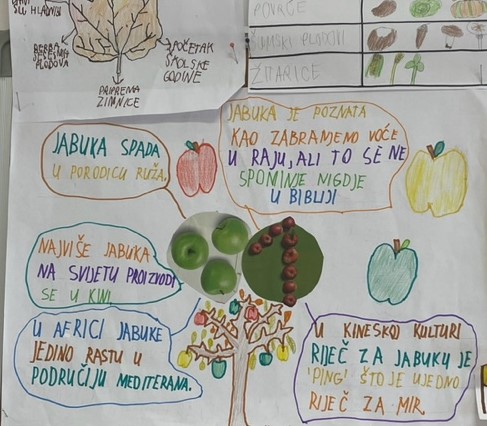 SU HLADNIJI
BERBA
JESENSKIH
PLODOVA
PRIPREMA
ZIMNICE
POČETAK
ŠKOLSKE
GODINE
POVRĆE
ŠUMSKI PLODOVI
ŽITARICE
JABUKA SPADA
U PORODICU RUŽA.
JABUKA JE POZNATA
KAO ZABRANJENO VOĆE
U RAJU, ALI TO SE NE
SPOMINJE NIGDJE
U BIBLIJI
NAJVIŠE JABUKA
NA SVIJETU PROIZVODI
SE U KINI.
U AFRICI JABUKE
JEDINO RASTU U
PODRUČJU MEDITERANA.
U KINESKOJ KULTURI
RIJEČ ZA JABUKU JE
'PING' ŠTO JE UJEDNO
RIJEČ ZA MIR.